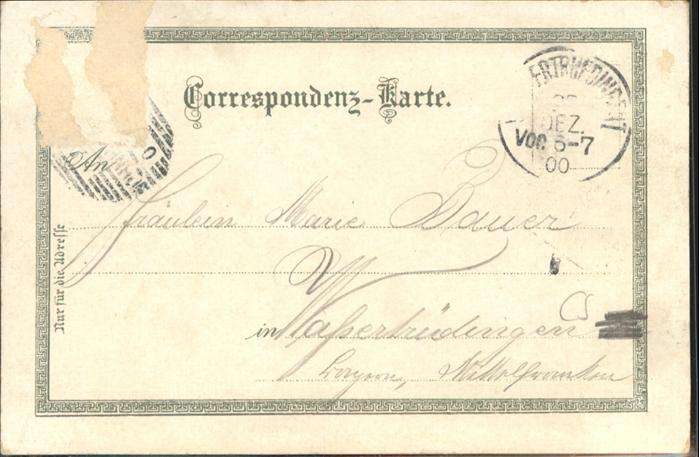 Correspondenz-Karte.
An
DEZ.
VOR 6-7
00
Fräulein Marie Bauer
in Wassertrüdingen
Bayern, Mittelfranken
Nur für die Adresse